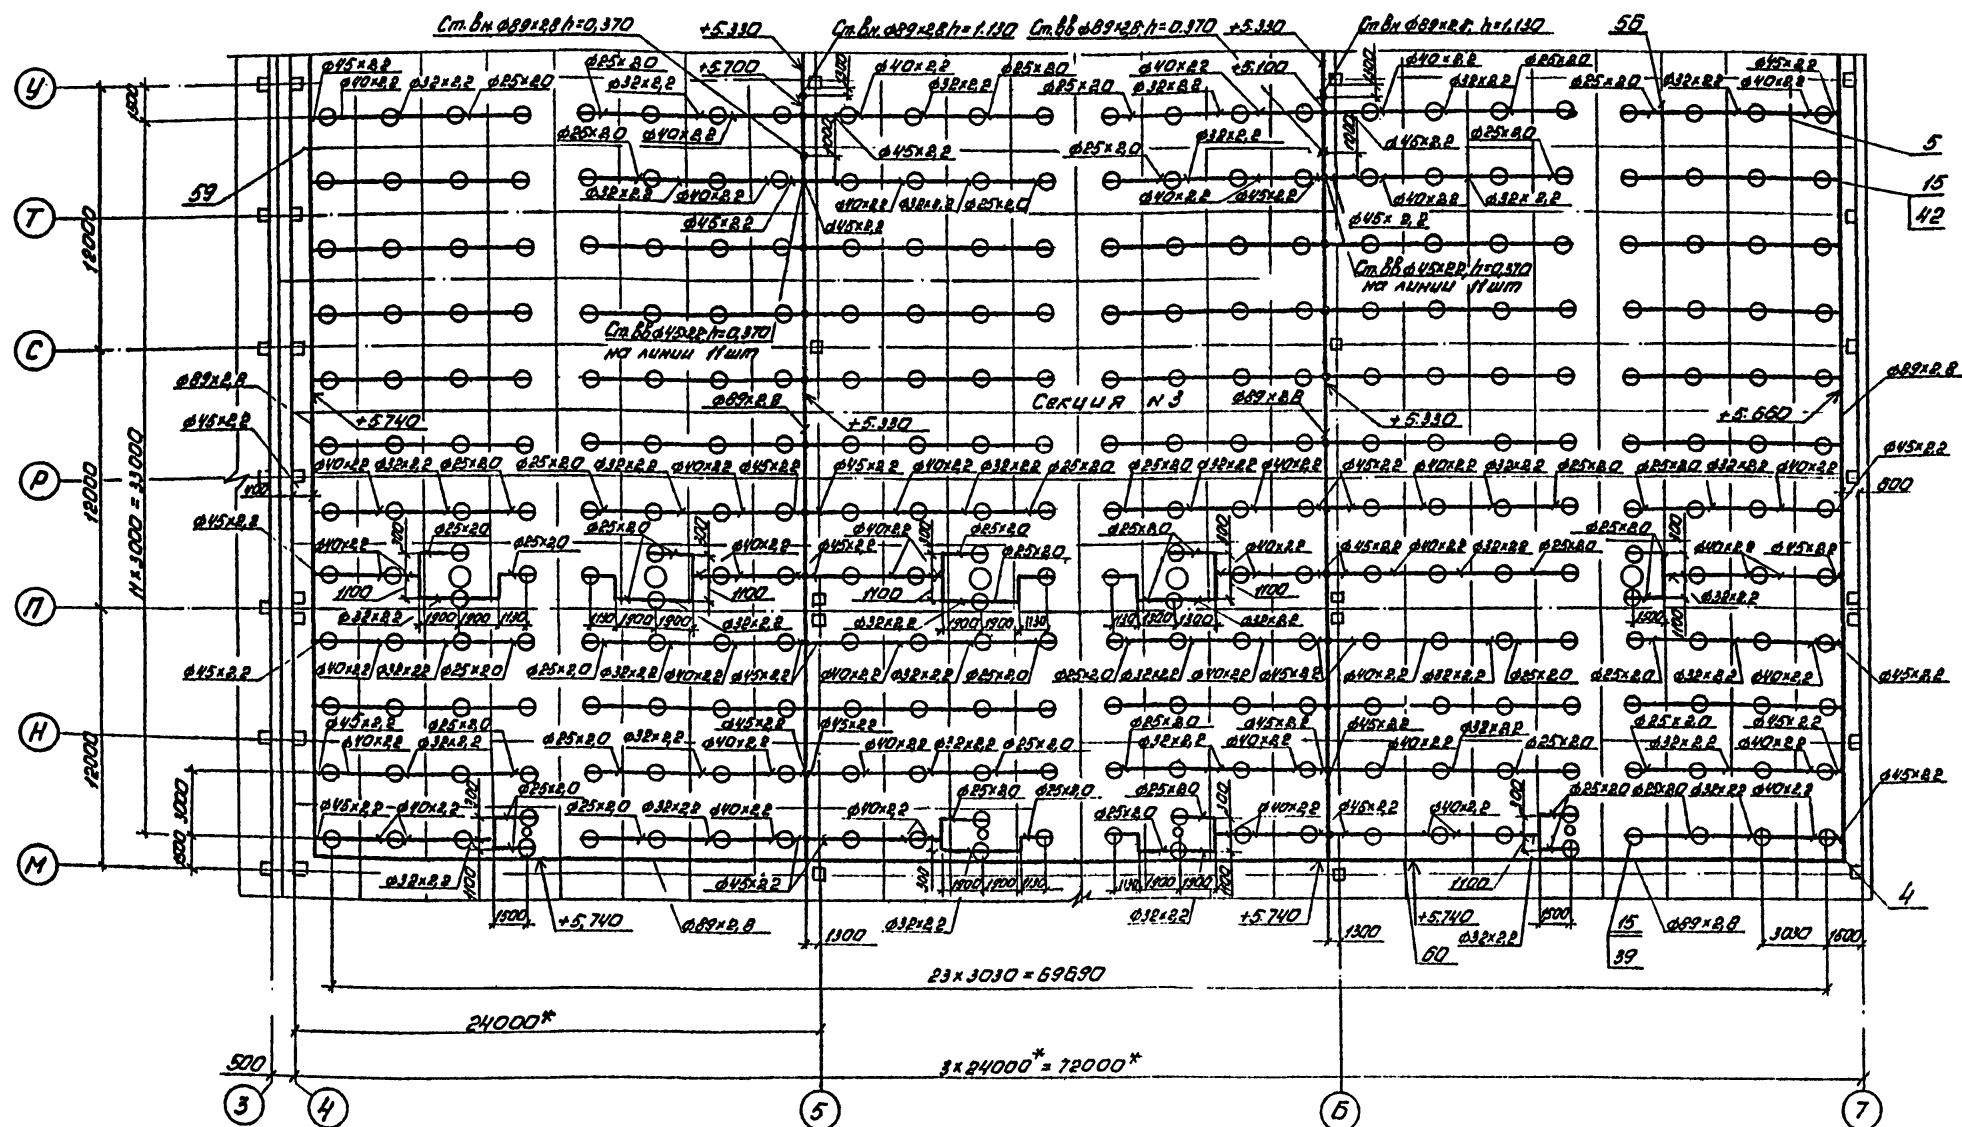 Ст.Вн ф89×2,8 h=0,370
+5.330
Ст.Вн. ф89×2,8 h=1.130
Ст.Вв ф89×2,8 h=0.370
+5.330
Ст.Вн ф89×2,8, h=1,130
56
У
1500
ф45×2,2
ф40×2,2
ф32×2,2
ф25×2.0
ф25×2.0
ф32×2,2
+5.700
ф40×2,2
ф32×2,2
ф25×2.0
ф25×2.0
ф32×2,2
ф40×2,2
+5.100
ф40×2,2
ф32×2,2
ф25×2.0
ф25×2.0
ф32×2,2
ф40×2,2
ф45×2,2
ф25×2.0
ф40×2,2
1000
ф45×2,2
ф25×2,0
ф32×2,2
1000
ф45×2,2
ф25×2.0
5
59
ф32×2,2
ф40×2,2
ф45×2,2
ф40×2,2
ф32×2,2
ф25×2.0
ф45×2,2
ф40×2,2
ф45×2,2
ф40×2,2
ф32×2,2
ф45×2,2
15
42
Т
12000
Ст.Вв ф45×2,2, h=0,370
на линии 11 шт
Ст.Вв ф45×2,2 h=0,370
на линии 11 шт
С
ф89×2,8
ф45×2,2
+5.740
ф89×2,8
+5.330
Секция N 3
ф89×2.8
+5.330
+5.660
ф89×2,8
ф45×2,2
11×3000=33000
12000
Р
400
ф40×2,2
ф32×2,2
ф25×2.0
ф25×2.0
ф32×2,2
ф40×2,2
ф45×2,2
ф45×2,2
ф40×2,2
ф32×2,2
ф25×2.0
ф25×2.0
ф32×2,2
ф40×2,2
ф45×2,2
ф40×2,2
ф32×2,2
ф25×2.0
ф25×2.0
ф32×2,2
ф40×2,2
600
ф45×2,2
ф40×2,2
300
ф25×2.0
ф25×2.0
ф25×2.0
300
ф40×2,2
ф45×2,2
ф40×2,2
300
ф25×2.0
ф25×2.0
ф25×2.0
ф40×2,2
ф45×2,2
ф40×2,2
ф32×2,2
ф25×2.0
ф25×2.0
ф40×2,2
ф45×2,2
П
1100
1100
1100
1100
ф32×2,2
1900
1900
1130
1130
1900
1900
ф32×2,2
ф32×2,2
1900
1900
1130
1130
1300
1300
ф32×2,2
ф32×2,2
1500
1100
ф45×2,2
ф40×2,2
ф32×2,2
ф25×2.0
ф25×2.0
ф32×2,2
ф40×2,2
ф45×2,2
ф40×2,2
ф32×2,2
ф25×2.0
ф25×2.0
ф32×2,2
ф40×2,2
ф45×2,2
ф40×2,2
ф32×2,2
ф25×2.0
ф25×2.0
ф32×2,2
ф40×2,2
ф45×2,2
Н
12000
ф45×2,2
ф40×2,2
ф25×2.0
ф32×2,2
ф25×2.0
ф32×2,2
ф45×2,2
ф40×2,2
ф45×2,2
ф40×2,2
ф32×2,2
ф25×2.0
ф25×2.0
ф32×2,2
ф45×2,2
ф40×2,2
ф45×2,2
ф40×2,2
ф32×2,2
ф25×2.0
ф25×2.0
ф32×2,2
ф45×2,2
ф40×2,2
3000
ф45×2,2
ф40×2,2
300
ф25×2.0
ф25×2.0
ф32×2,2
ф40×2,2
ф40×2,2
ф25×2.0
ф25×2.0
ф25×2.0
ф25×2.0
300
ф40×2,2
ф45×2,2
ф40×2,2
300
ф25×2.0
ф25×2.0
ф32×2,2
ф40×2,2
ф45×2,2
М
ф32×2,2
1100
ф45×2,2
300
1900
1900
1130
1130
1900
1900
1100
1100
4
1500
+5,740
ф89×2,8
1300
ф32×2,2
ф32×2,2
+5.740
1300
+5.740
60
ф32×2,2
1500
15
39
ф89×2,8
3030
1500
23×3030=69690
24000*
500
3×24000*=72000*
3
4
5
6
7